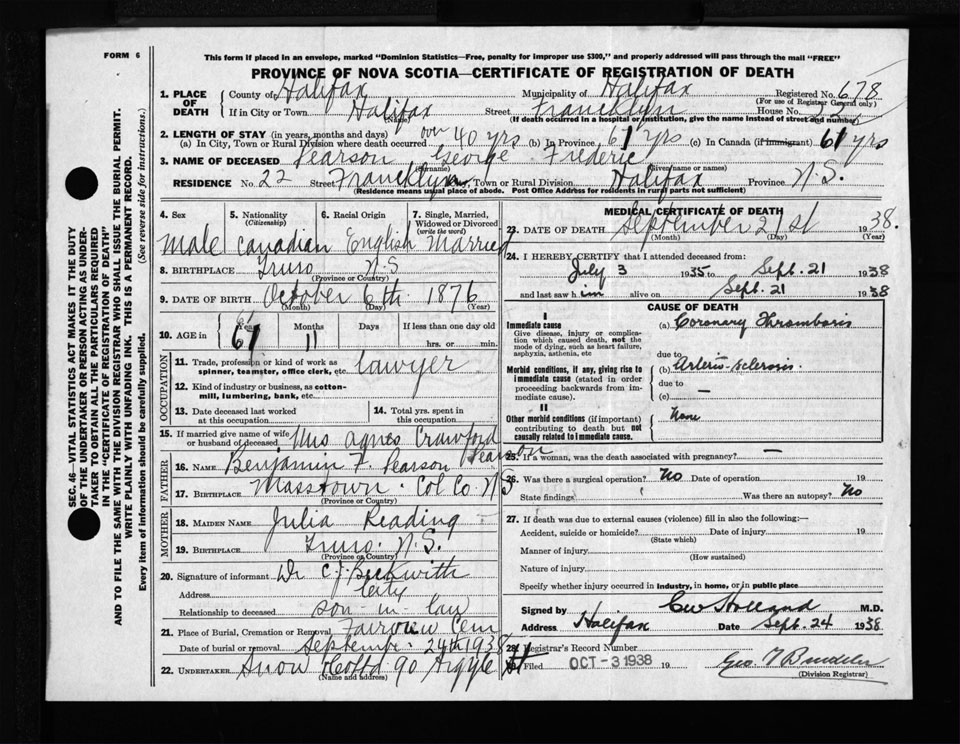 FORM 6
This form if placed in an envelope, marked "Dominion Statistics—Free, penalty for improper use $300," and properly addressed will pass through the mail "FREE"
PROVINCE OF NOVA SCOTIA—CERTIFICATE OF REGISTRATION OF DEATH
SEC. 46—VITAL STATISTICS ACT MAKES IT THE DUTY
OF THE UNDERTAKER OR PERSON ACTING AS UNDER-
TAKER TO OBTAIN ALL THE PARTICULARS REQUIRED
IN THE "CERTIFICATE OF REGISTRATION OF DEATH"
AND TO FILE THE SAME WITH THE DIVISION REGISTRAR WHO SHALL ISSUE THE BURIAL PERMIT.
WRITE PLAINLY WITH UNFADING INK. THIS IS A PERMANENT RECORD.
Every item of information should be carefully supplied. (See reverse side for instructions.)
1. PLACE OF DEATH
County of Halifax Municipality of Halifax Registered No. 678
(For use of Registrar General only)
If in City or Town Halifax Street Francklyn House No. 22
(Name)
(If death occurred in a hospital or institution, give the name instead of street and number)
2. LENGTH OF STAY (in years, months and days)
(a) In City, Town or Rural Division where death occurred over 40 yrs (b) In Province 61 yrs (c) In Canada (if immigrant) 61 yrs
3. NAME OF DECEASED Pearson George Frederic
(Surname) (Given name or names)
RESIDENCE No. 22 Street Francklyn City, Town or Rural Division Halifax Province N.S.
(Residence means usual place of abode. Post Office Address for residents in rural parts not sufficient)
4. Sex 5. Nationality (Citizenship) 6. Racial Origin 7. Single, Married, Widowed or Divorced (write the word)
Male Canadian English Married
8. BIRTHPLACE Truro N.S
(Province or Country)
9. DATE OF BIRTH October 6th 1876
(Month) (Day) (Year)
10. AGE in Years Months Days If less than one day old
61 11 hrs. or min.
OCCUPATION
11. Trade, profession or kind of work as spinner, teamster, office clerk, etc. lawyer
12. Kind of industry or business, as cotton-mill, lumbering, bank, etc.
13. Date deceased last worked at this occupation 14. Total yrs. spent in this occupation
15. If married give name of wife or husband of deceased Mrs Agnes Crawford Pearson
FATHER
16. NAME Benjamin F. Pearson
17. BIRTHPLACE Masstown. Col Co. N S
(Province or Country)
MOTHER
18. MAIDEN NAME Julia Reading
19. BIRTHPLACE Truro. N.S.
(Province or Country)
20. Signature of informant Dr C. J. Beckwith
Address City
Relationship to deceased son-in-law
21. Place of Burial, Cremation or Removal Fairview Cem
Date of burial or removal September 24th 1938
22. UNDERTAKER Snow & Co Ltd 90 Argyle St
(Name and address)
MEDICAL CERTIFICATE OF DEATH
23. DATE OF DEATH September 21st 1938.
(Month) (Day) (Year)
24. I HEREBY CERTIFY that I attended deceased from:
July 3 1935 to Sept. 21 1938
and last saw him alive on Sept. 21 1938
CAUSE OF DEATH
I
Immediate cause
Give disease, injury or complication which caused death, not the mode of dying, such as heart failure, asphyxia, asthenia, etc
(a) Coronary Thrombosis
due to
Morbid conditions, if any, giving rise to immediate cause (stated in order proceeding backwards from immediate cause).
(b) Arterio-sclerosis.
due to —
(c)
II
Other morbid conditions (if important) contributing to death but not causally related to immediate cause.
None
25. If a woman, was the death associated with pregnancy? —
26. Was there a surgical operation? No Date of operation 19
State findings Was there an autopsy? No
27. If death was due to external causes (violence) fill in also the following:—
Accident, suicide or homicide? Date of injury 19
(State which)
Manner of injury
(How sustained)
Nature of injury
Specify whether injury occurred in industry, in home, or in public place
Signed by C W Holland M.D.
Address Halifax Date Sept. 24 1938
28. Registrar's Record Number
29. Filed OCT - 3 1938 19
(Division Registrar)